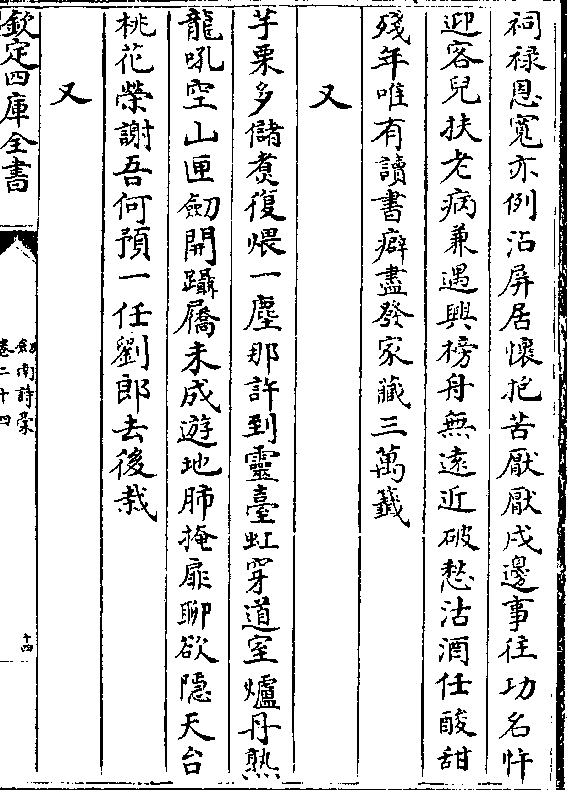 祠禄恩寛亦例沾屏居懐抱苦厭厭戍邊事往功名忤
迎客兒扶老病兼遇興榜舟無遠近破愁沽酒任酸甜
殘年唯有讀書癖盡發家藏三萬籤
又
芋栗多儲煑復煨一塵那許到靈臺虹穿道室爐丹熟
龍吼空山匣劒開躡屩未成遊地肺掩扉聊欲隱天台
桃花榮謝吾何預一任劉郎去後栽
又
欽定四庫全書
劒南詩藁
卷二十四
十四